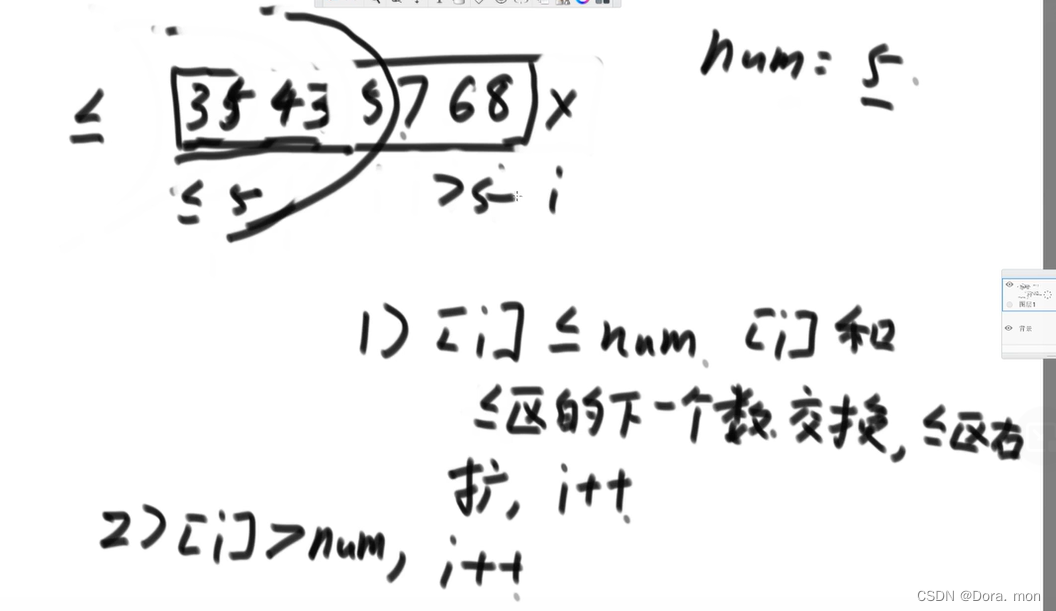 num: 5
≤ 3 5 4 3 5 7 6 8 x
≤ 5 >5 i
1) [i] ≤ num [i] 和
≤区的下一个数交换, ≤区右
扩, i++
2) [i] > num, i++
图层1
背景
CSDN @Dora. mon